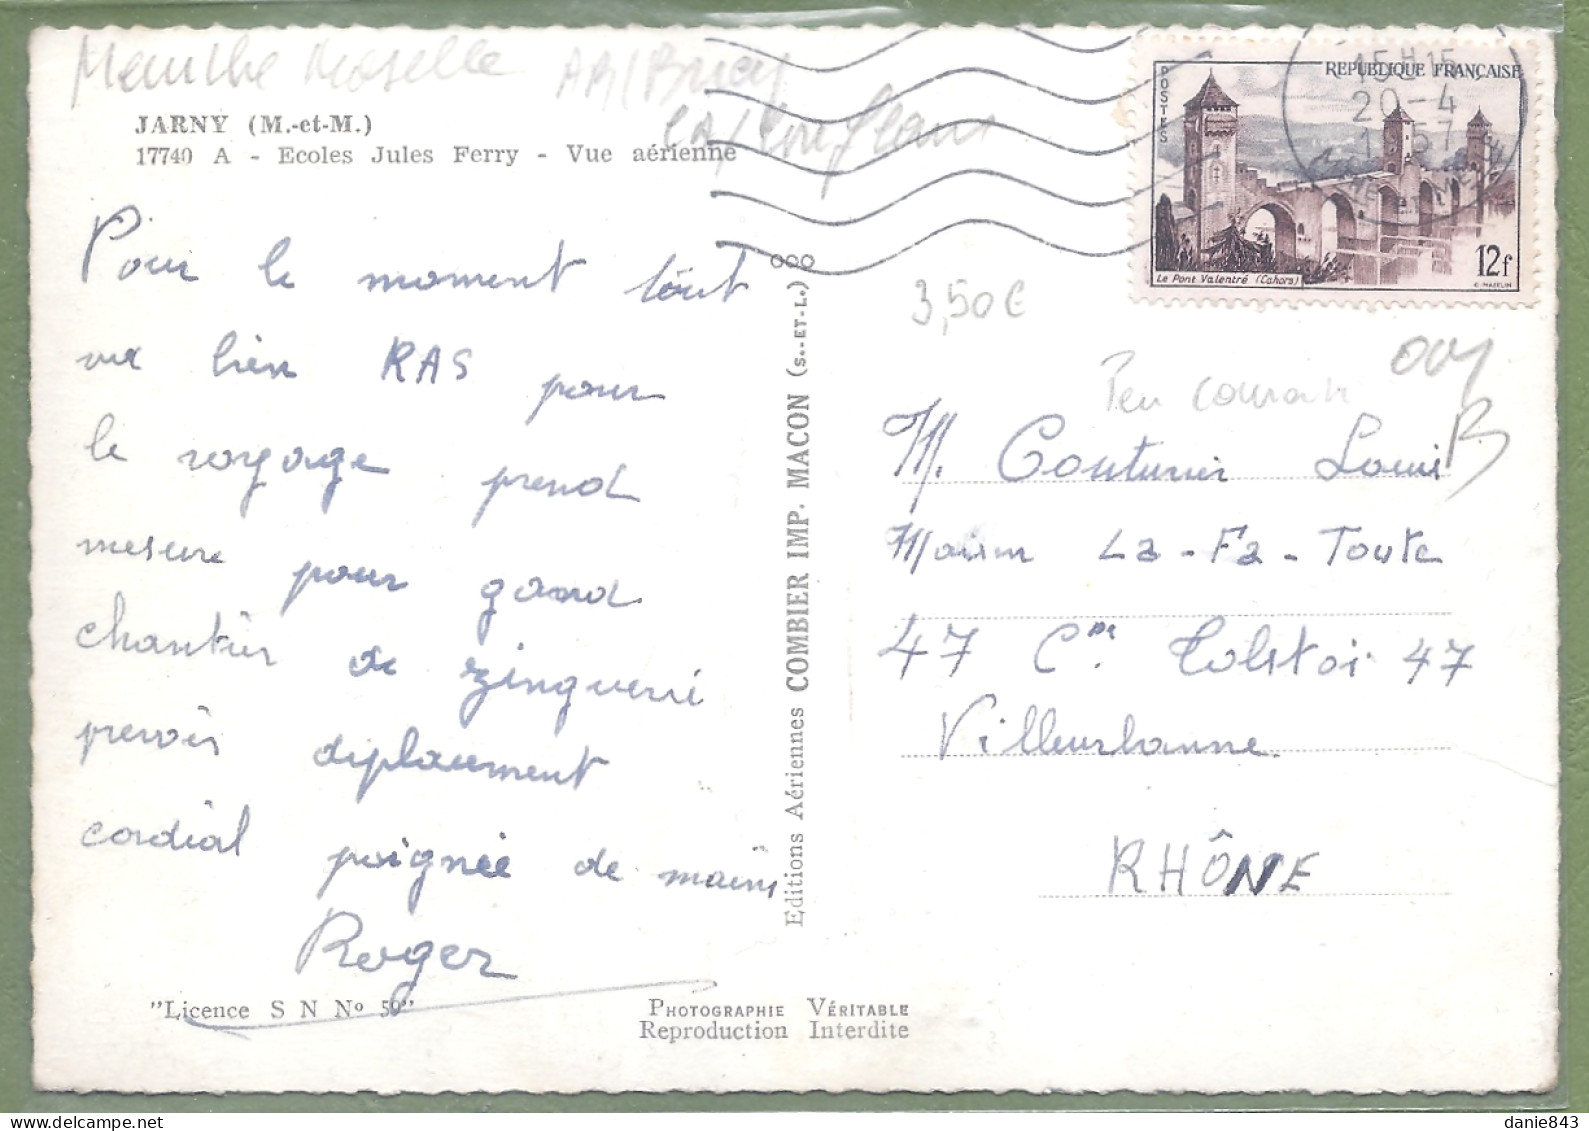 Meurthe Moselle
JARNY (M.-et-M.)
17740 A - Ecoles Jules Ferry - Vue aérienne
Pour le moment tout
va bien RAS pour
le voyage prend
mesure pour grand
chantier de zinguerie
prevoir deplacement
cordial poignée de mains
Roger
"Licence S N No 59"
PHOTOGRAPHIE VÉRITABLE
Reproduction Interdite
Editions Aériennes COMBIER IMP. MACON (S.-ET-L.)
POSTES
REPUBLIQUE FRANÇAISE
12f
Le Pont Valentré (Cahors)
20-4
3,50€
Peu courante
M. Couturier Louis
Maison La-Fa-Toute
47 Crs Tolstoi 47
Villeurbanne
RHÔNE
danie843